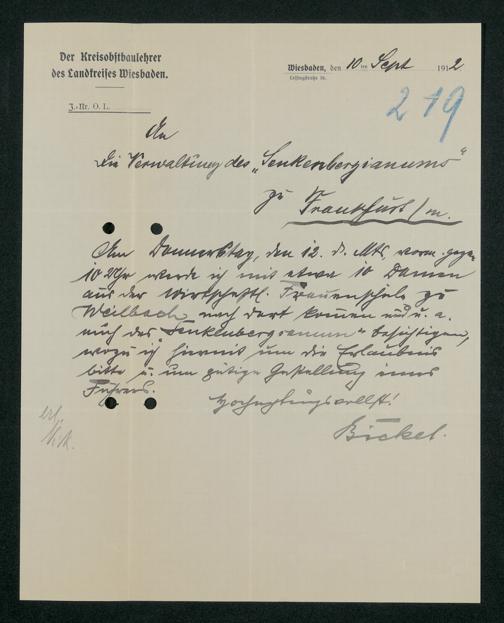 Der Kreisobstbaulehrer
des Landkreises Wiesbaden.
Wiesbaden, den 10ten Sept 1912
Lessingstraße 16.
J.-Nr. O. L.
219
An
die Verwaltung des „Senkenbergianums“
zu
Frankfurt/m.
Am Donnerstag, den 12. d. Mts, vorm. gegen
10 Uhr werde ich mit etwa 10 Damen
aus der wirtschaftl. Frauenschule zu
Weilbach nach dort kommen und u. a.
auch das Senkenbergianum“ besichtigen,
wozu ich hiermit um die Erlaubnis
bitte u. um gütige Gestellung eines
Führers.
Hochachtungsvollst!
Bickel.
erl.